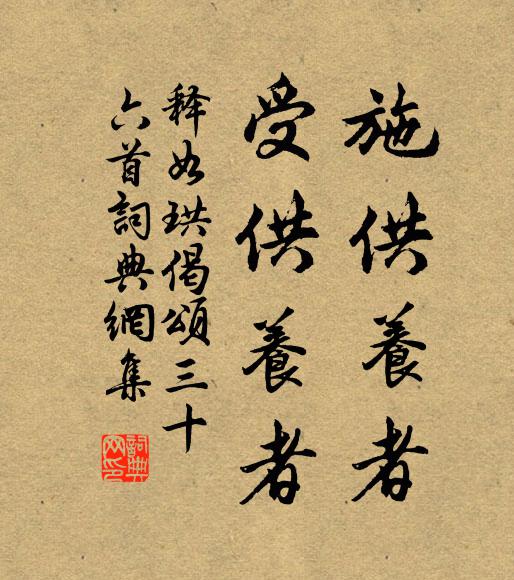 施供養者
受供養者
释如珙偈頌三十
六首詞典網集
詞典
网印